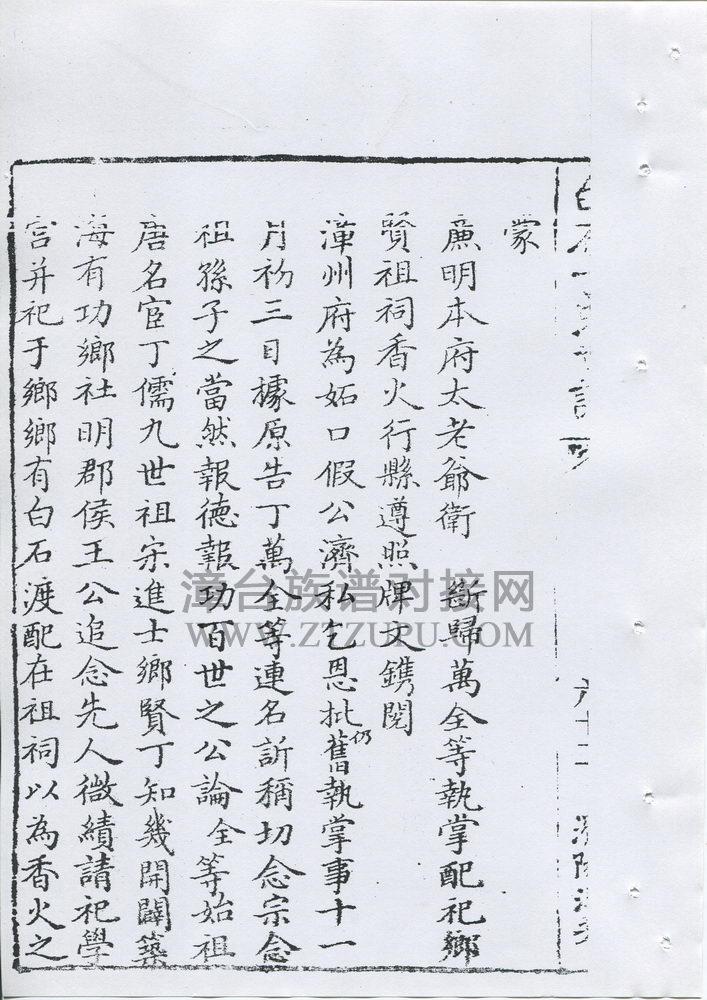 蒙
廉明本府太老爺衛 斷歸萬全等執掌配祀鄉
賢祖祠香火行縣遵照牌文鐫閱
漳州府為妬口假公濟私乞恩批仍舊執掌事十一
月初三日據原告丁萬全等連名訴稱切念宗念
祖孫子之當然報德報功百世之公論全等始祖
唐名宦丁儒九世祖宋進士鄉賢丁知幾開闢築
海有功鄉社明郡侯王公追念先人微績請祀學
宮并祀于鄉鄉有白石渡配在祖祠以為香火之
六十二
漳台族谱对接网
WWW.ZTZUPU.COM